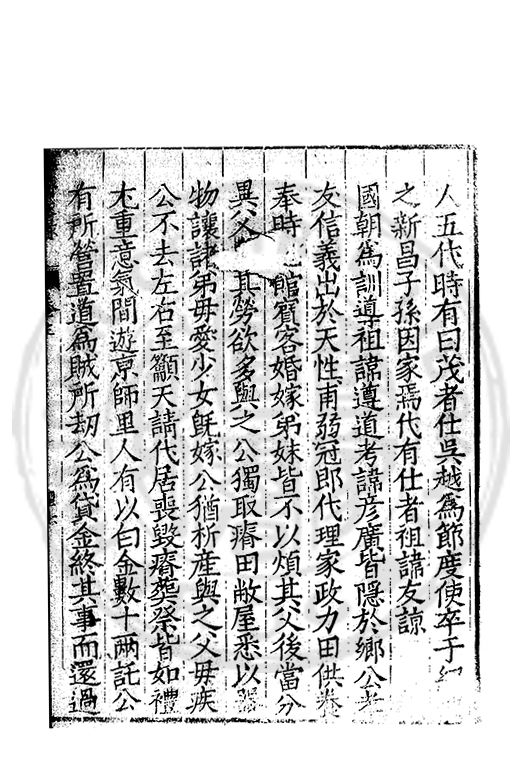 人五代時有曰茂者仕吳越為節度使卒于
之新昌子孫因家焉代有仕者祖諱友諒
國朝為訓導祖諱遵道考諱彥廣皆隱於鄉公孝
友信義出於天性甫弱冠郎代理家政力田供養
奉時館賓客婚嫁弟妹皆不以煩其父後當分
異父其勞欲多與之公獨取瘠田敝屋悉以器
物讓諸弟毋愛少女旣嫁公猶析產與之父毋疾
公不去左右至籲天請代居喪毀瘠葬祭皆如禮
尤重意氣間遊京師里人有以白金數十兩託公
有所營置道為賊所劫公為貸金終其事而還過